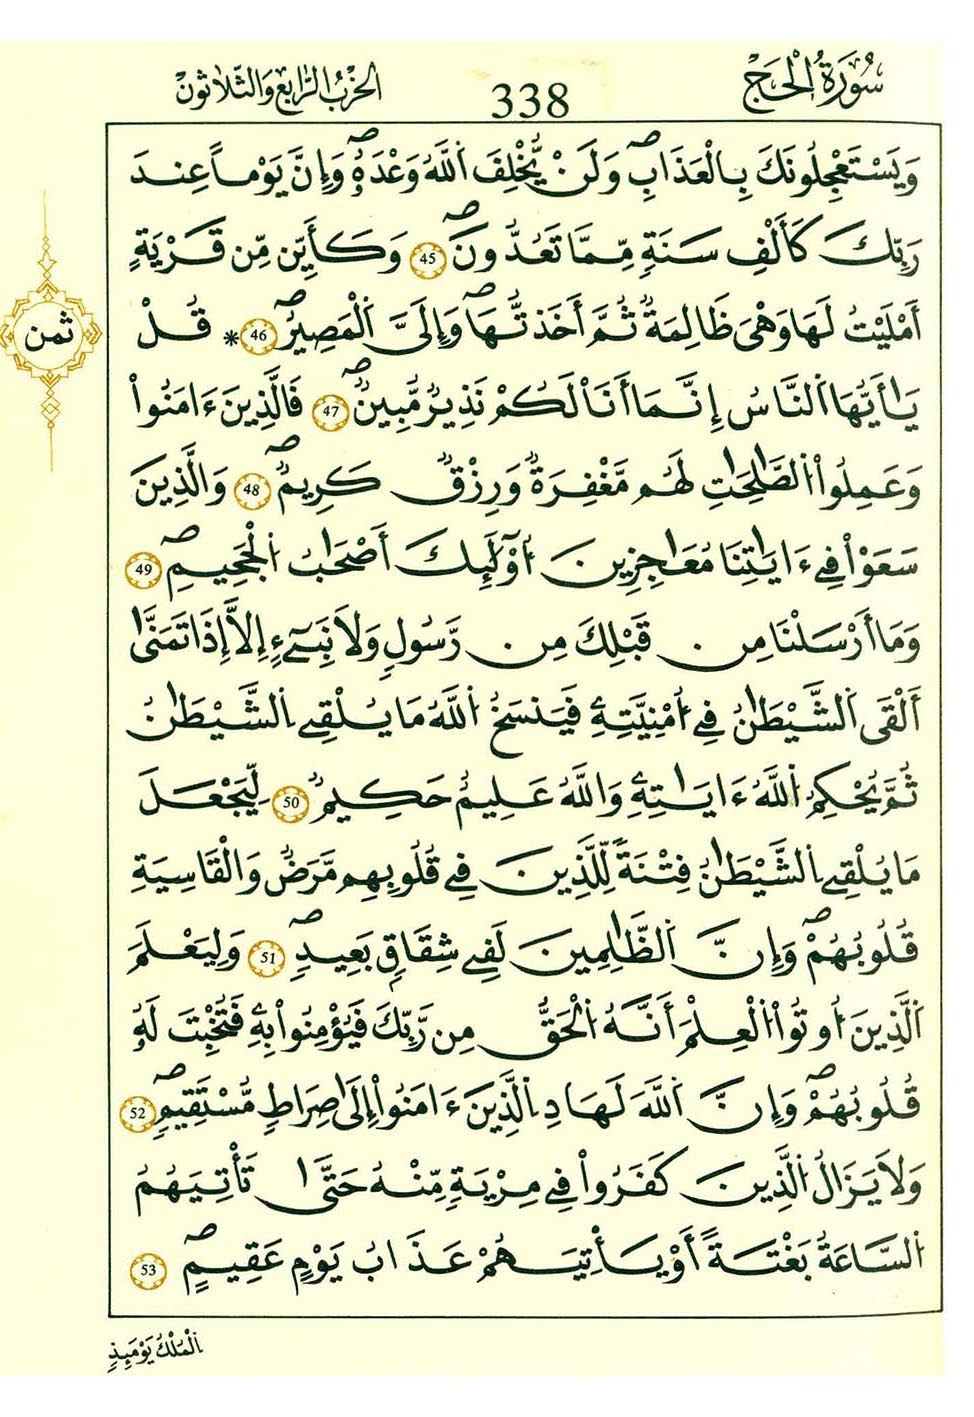 سُورَةُ الْحَجِّ
338
الحِزْبُ الرَّابِعُ وَالثَّلاَثُونَ
وَيَسْتَعْجِلُونَكَ بِالْعَذَابِۖ وَلَنْ يُّخْلِفَ اَ۬للَّهُ وَعْدَهُۥۖ وَإِنَّ يَوْماً عِندَ
رَبِّكَ كَأَلْفِ سَنَةٖ مِّمَّا تَعُدُّونَۖ 45 وَكَأَيِّن مِّن قَرْيَةٍ
اَمْلَيْتُ لَهَا وَهْىَ ظَالِمَةٞ ثُمَّ أَخَذتُّهَاۖ وَإِلَىَّ اَ۬لْمَصِيرُۖ 46 * قُلْ
يَٰأَيُّهَا اَ۬لنَّاسُ إِنَّمَا أَنَا لَكُمْ نَذِيرٞ مُّبِينٞۖ 47 فَالذِينَ ءَامَنُواْ
وَعَمِلُواْ اُ۬لصَّٰلِحَٰتِ لَهُم مَّغْفِرَةٞ وَرِزْقٞ كَرِيمٞۖ 48 وَالذِينَ
سَعَوْاْ فِےٓ ءَايَٰتِنَا مُعَٰجِزِينَ أُوْلَٰٓئِكَ أَصْحَٰبُ اُ۬لْجَحِيمِۖ 49
وَمَا أَرْسَلْنَا مِن قَبْلِكَ مِن رَّسُولٖ وَلاَ نَبِےٓءٍ اِلَّا إِذَا تَمَنَّىٰ
أَلْقَى اَ۬لشَّيْطَٰنُ فِےٓ أُمْنِيَّتِهِۦ فَيَنسَخُ اُ۬للَّهُ مَا يُلْقِے اِ۬لشَّيْطَٰنُ
ثُمَّ يُحْكِمُ اُ۬للَّهُ ءَايَٰتِهِۦ وَاللَّهُ عَلِيمٌ حَكِيمٞ 50 لِّيَجْعَلَ
مَا يُلْقِے اِ۬لشَّيْطَٰنُ فِتْنَةٗ لِّلذِينَ فِے قُلُوبِهِم مَّرَضٞ وَالْقَاسِيَةِ
قُلُوبُهُمْۖ وَإِنَّ اَ۬لظَّٰلِمِينَ لَفِے شِقَاقِۢ بَعِيدٖۖ 51 وَلِيَعْلَمَ
اَ۬لذِينَ أُوتُواْ اُ۬لْعِلْمَ أَنَّهُ اُ۬لْحَقُّ مِن رَّبِّكَ فَيُؤْمِنُواْ بِهِۦ فَتُخْبِتَ لَهُۥ
قُلُوبُهُمْۖ وَإِنَّ اَ۬للَّهَ لَهَادِ اِ۬لذِينَ ءَامَنُواْ إِلَىٰ صِرَٰطٖ مُّسْتَقِيمٖۖ 52
وَلاَ يَزَالُ اُ۬لذِينَ كَفَرُواْ فِے مِرْيَةٖ مِّنْهُ حَتَّىٰ تَأْتِيَهُمُ
اُ۬لسَّاعَةُ بَغْتَةً أَوْ يَأْتِيَهُمْ عَذَابُ يَوْمٍ عَقِيمٍۖ 53
ثمن
اَ۬لْمُلْكُ يَوْمَئِذٖ